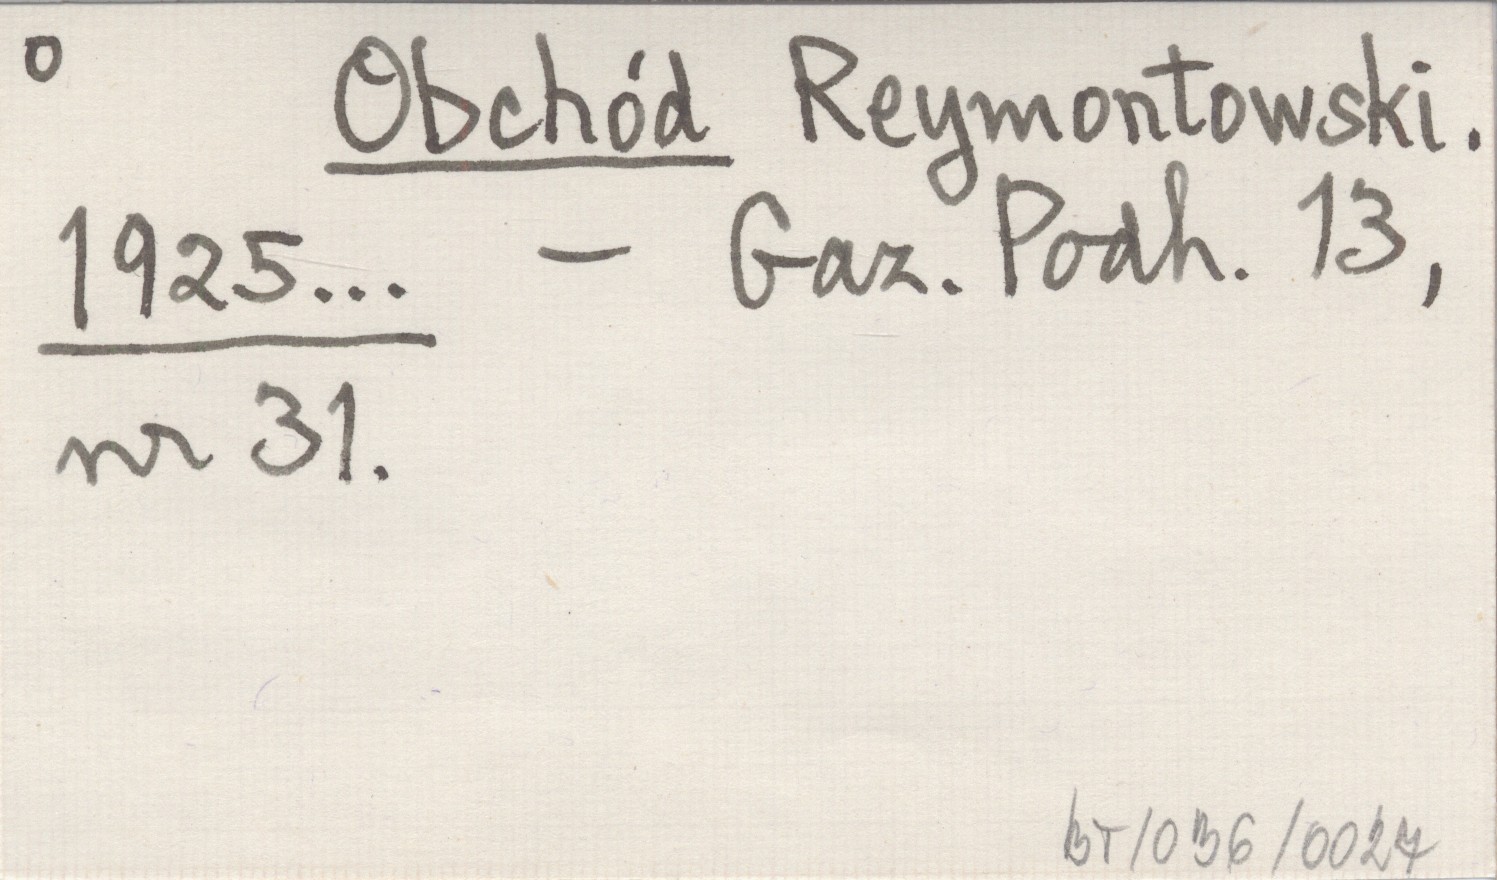 o
Obchód Reymontowski.
1925... – Gaz. Podh. 13,
nr 31.
BT/036/0027